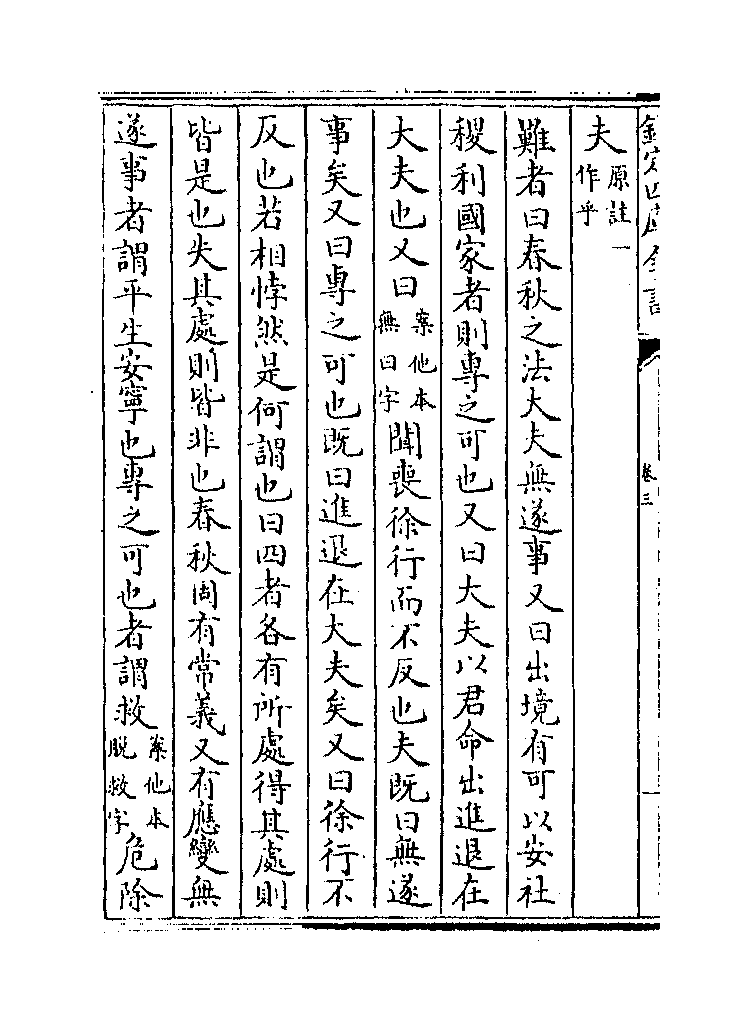 欽定四庫全書
卷三
夫原註一作乎
難者曰春秋之法大夫無遂事又曰出境有可以安社
稷利國家者則專之可也又曰大夫以君命出進退在
大夫也又曰案他本無曰字聞喪徐行而不反也夫既曰無遂
事矣又曰專之可也既曰進退在大夫矣又曰徐行不
反也若相悖然是何謂也曰四者各有所處得其處則
皆是也失其處則皆非也春秋固有常義又有應變無
遂事者謂平生安寧也專之可也者謂救案他本脫救字危除